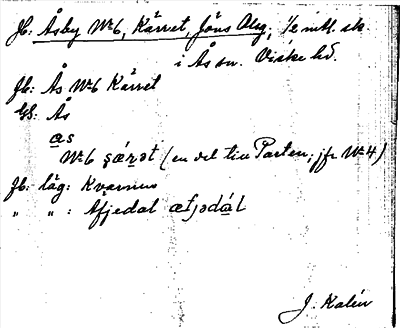 Jb: Åsby Nr 6, Kärret, Jöns Olsg, 1/2 mtl. sk.
i Ås sn. Viske hd.
Jb: Ås Nr 6 Kärret
GS: Ås
as
Nr 6 ʂǽrət (en del till Parten, jfr Nr 4)
Jb: läg: Kvarnus
" " : Afjedal æfjədál
J. Kalén